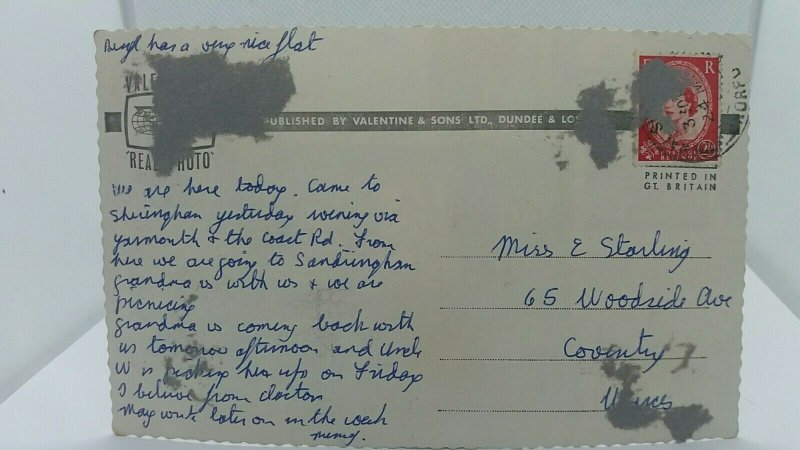 Beryl has a very nice flat
VALE
PUBLISHED BY VALENTINE & SONS LTD., DUNDEE & LO
"REAL PHOTO"
E R
PRINTED IN
GT. BRITAIN
We are here today. Came to
Sheringham yesterday evening via
yarmouth & the Coast Rd. From
here we are going to Sandringham
grandma is with us & we are
picnicing
grandma is coming back with
us tomorrow afternoon and Uncle
W is picking her up on Friday
I believe from
May write later on in the week
Miss E Starling
65 Woodside Ave
Coventry